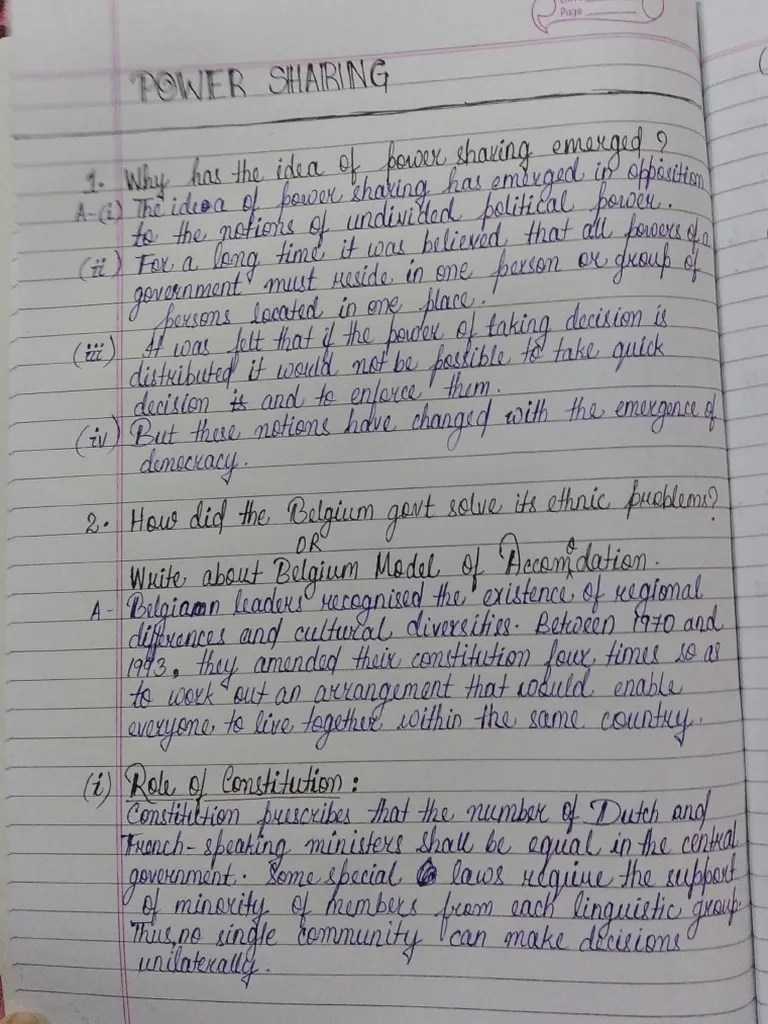 Page
POWER SHARING
1. Why has the idea of power sharing emerged?
A-(i) The idea of power sharing has emerged in opposition
to the notions of undivided political power.
(ii) For a long time it was believed that all powers of a
government must reside in one person or group of
persons located in one place.
(iii) It was felt that if the power of taking decision is
distributed it would not be possible to take quick
decision is and to enforce them.
(iv) But these notions have changed with the emergence of
democracy.
2. How did the Belgium govt solve its ethnic problems?
OR
Write about Belgium Model of Accomodation.
A- Belgian leaders recognised the existence of regional
differences and cultural diversities. Between 1970 and
1993, they amended their constitution four times so as
to work out an arrangement that would enable
everyone to live together within the same country.
(i) Role of Constitution:
Constitution prescribes that the number of Dutch and
French-speaking ministers shall be equal in the central
government. Some special laws require the support
of minority of members from each linguistic group.
Thus, no single community can make decisions
unilaterally.